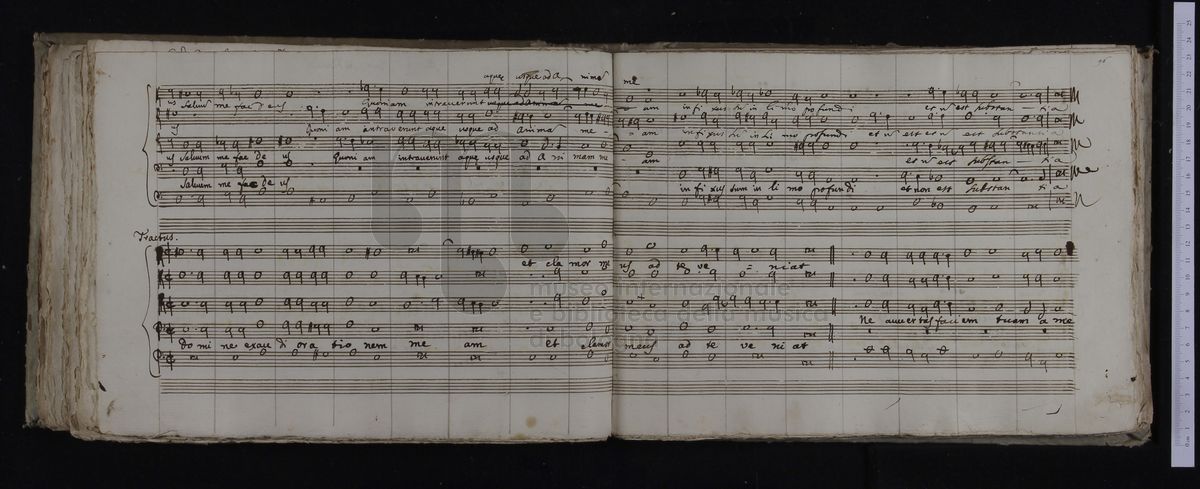 usque usque ad A nimã me
Salum me fac Quoniam intraverunt am in fi xus su in li mo profundi et nõ est substan tia
Quoni am intraverunt aque usque ad animã me am infixus su in li mo profundi et nõ est et nõ est substantia
Salvum me fac De us Quoni am intraverunt aque usque ad A ni mam me am et nõ est substan tia
Salvum me fac De us in fi xus sum in li mo profundi et non est substan tia
Tractus.
et cla mor me us ad te ve niat
Ne avertas faciem tuam a me
do mi ne exau di ora tio nem me am et clamor meus ad te ve ni at
museo internazionale
e biblioteca della musica